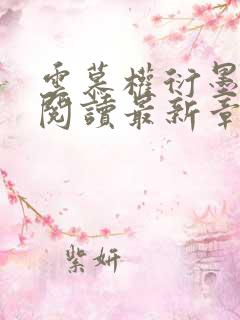 雲慕權衍墨
閱讀最新章
紫妍